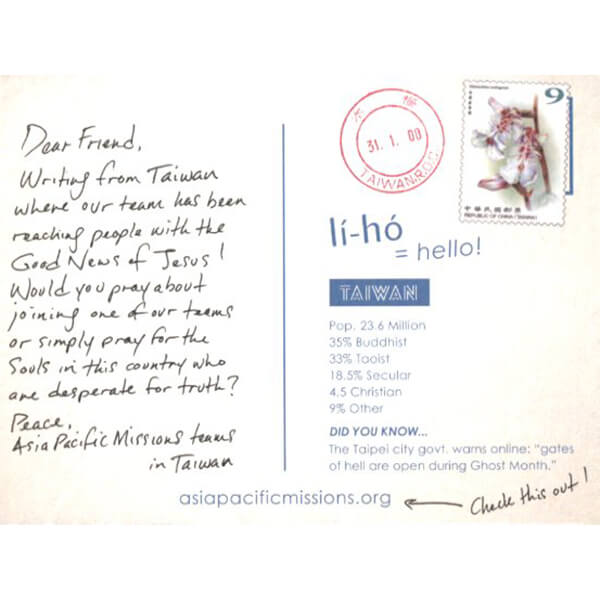 Dear Friend,
Writing from Taiwan
where our team has been
reaching people with the
Good News of Jesus!
Would you pray about
joining one of our teams
or simply pray for the
Souls in this country who
are desperate for truth?
Peace,
Asia Pacific Missions teams
in Taiwan
31. 1. 00
TAIWAN.R.O.C.
9
中華民國郵票
REPUBLIC OF CHINA (TAIWAN)
lí-hó
= hello!
TAIWAN
Pop. 23.6 Million
35% Buddhist
33% Taoist
18.5% Secular
4.5 Christian
9% Other
DID YOU KNOW...
The Taipei city govt. warns online: “gates
of hell are open during Ghost Month.”
asiapacificmissions.org
Check this out!